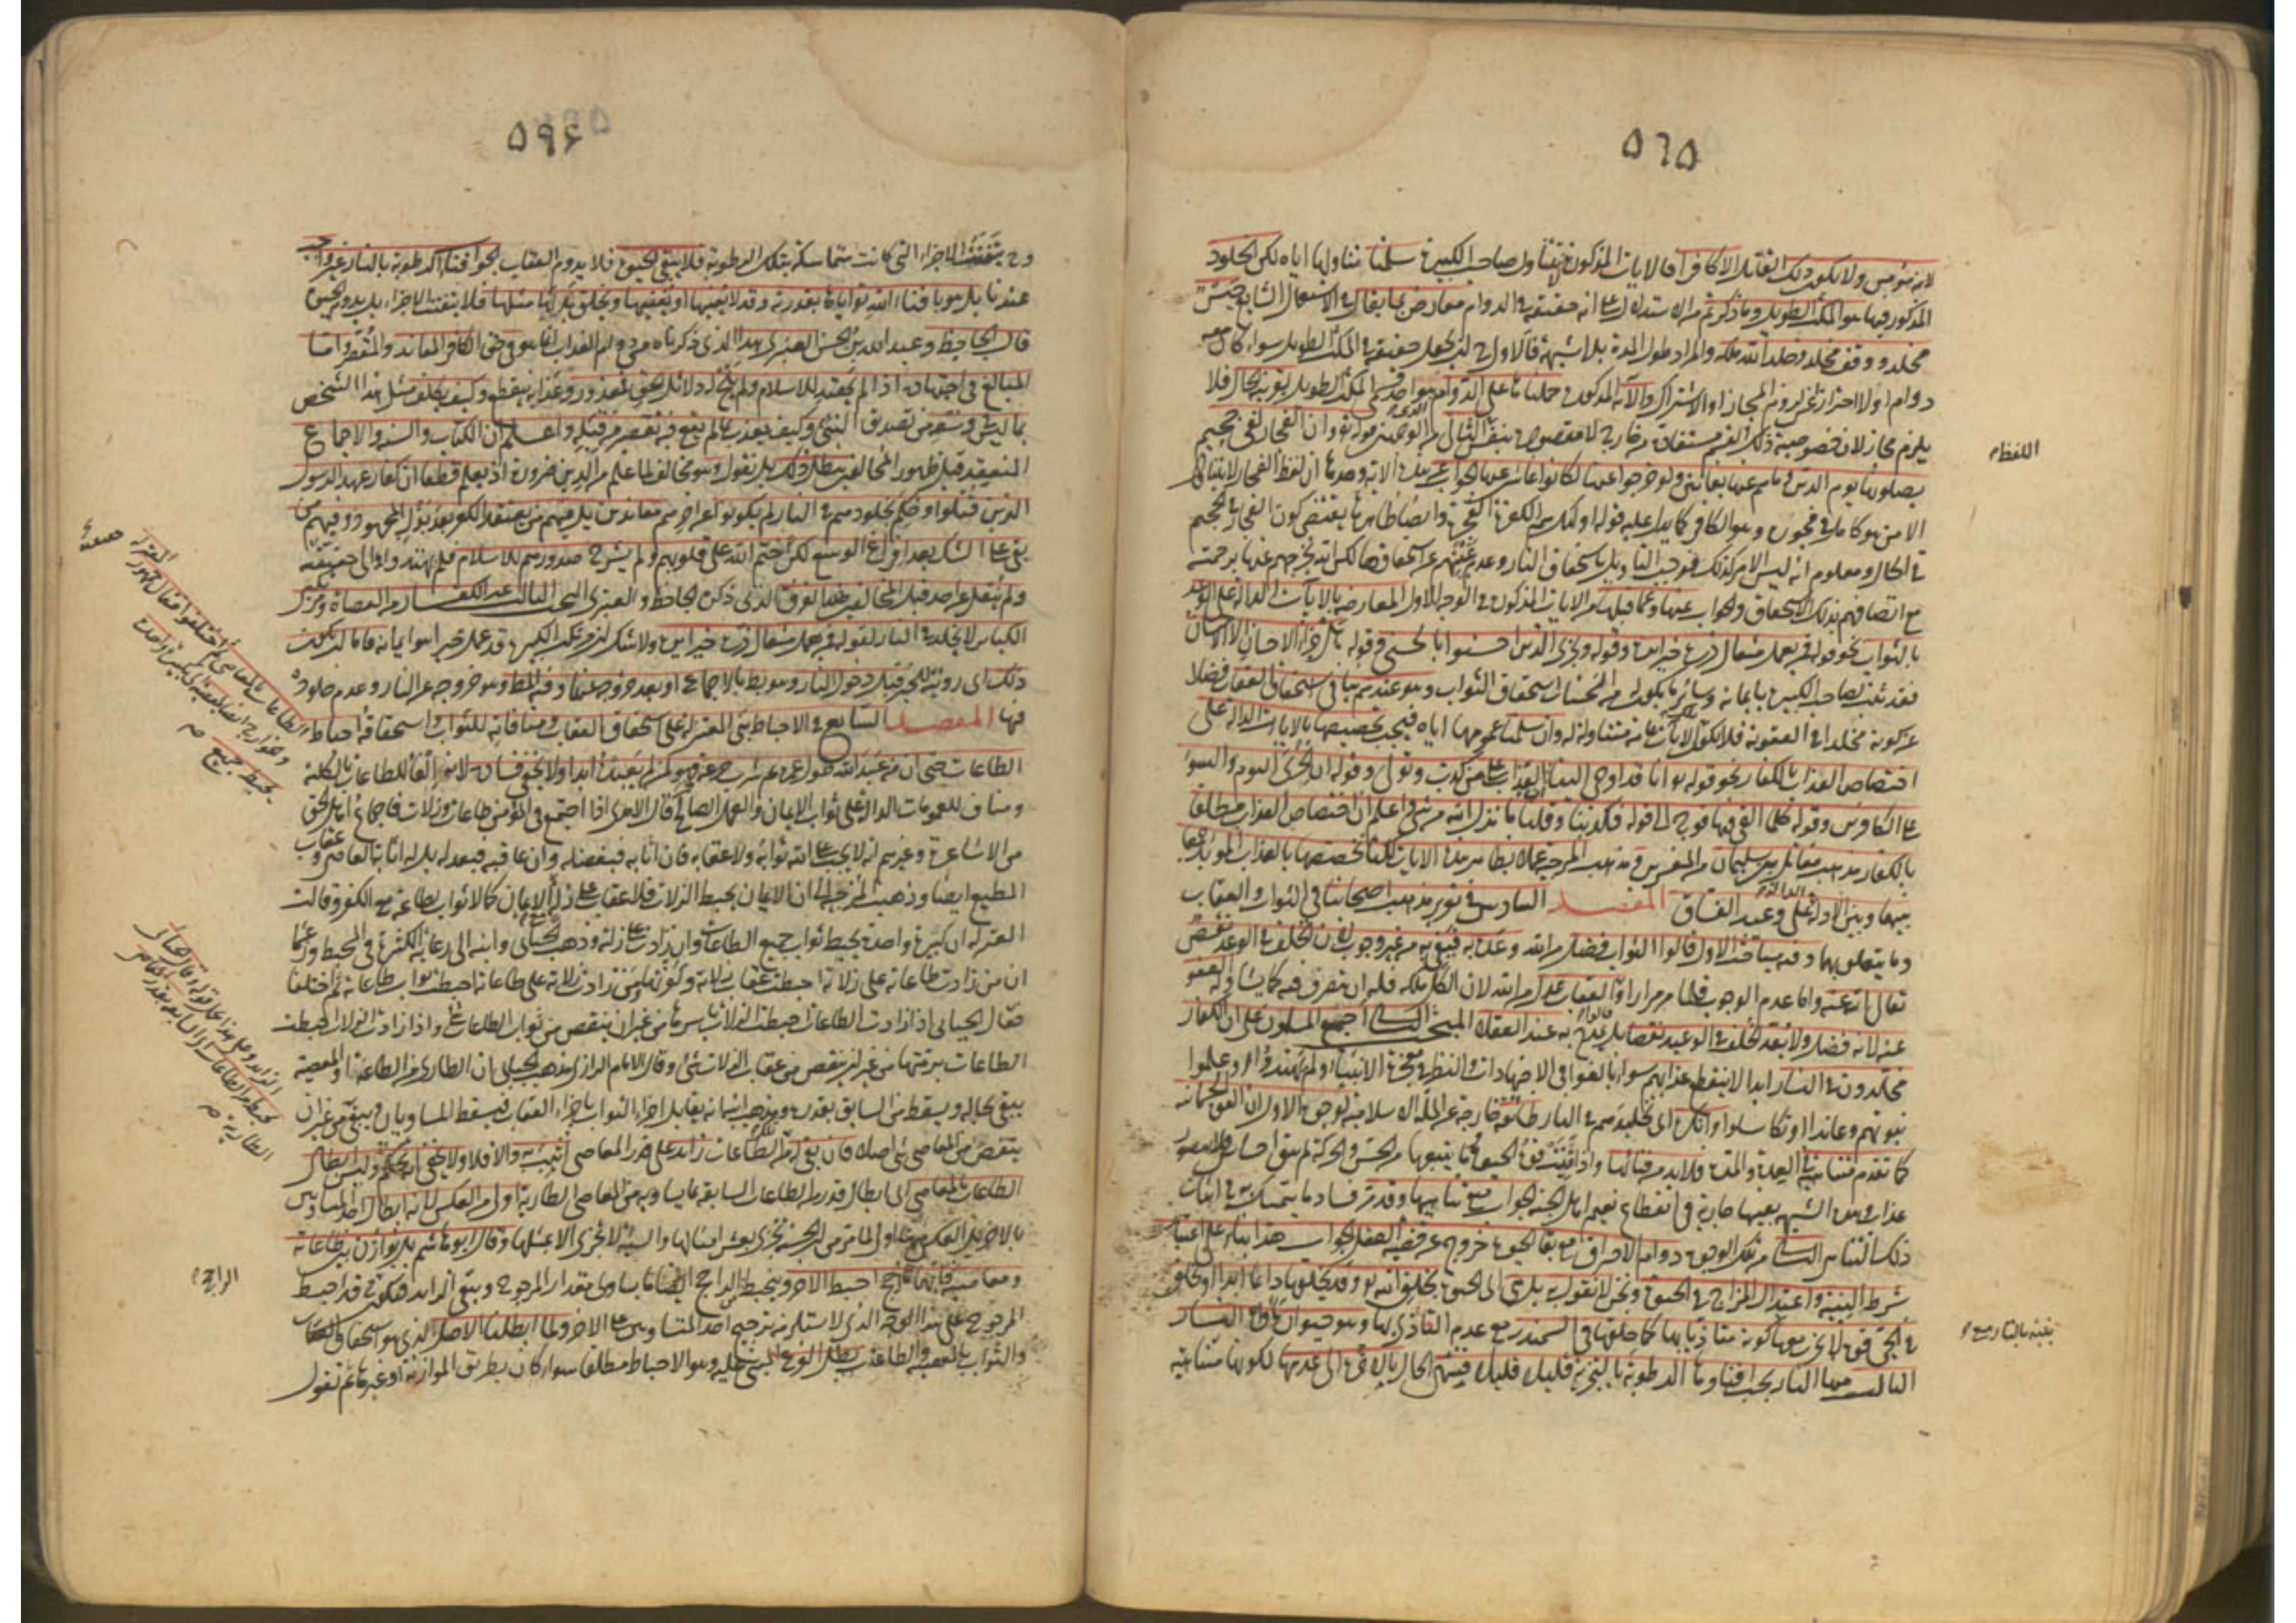 ٥٦٥
لانه مؤمن ولا يكون ذلك القابل الا كافرا فالايات المذكورة لا تتناول صاحب الكبيرة سلمنا تناولها اياه لكن الخلود
المذكور فيها هو المكث الطويل وما ذكرتم من الاستدلال على انه حقيقة في الدوام معارض بما يقال في الاستعمال الشايع حبس
مخلد ووقف مخلد وخلد الله ملكه والمراد طول المدة بلا شبهة فالاولى ان يجعل حقيقة في المكث الطويل سواء كان معه
دوام اولا احترازا عن لزوم المجاز او الاشتراك
يلزم مجاز لان خصوصية ذلك القسم مستفادة من خارج الثاني من الوجهين قوله تعالى وان الفجار لفي جحيم
يصلونها يوم الدين وما هم عنها بغائبين ولو خرجوا عنها لكانوا غائبين عنها الجواب ان لفظ الفجار لا يتناول
الا من هو كامل في فجوره وهو الكافر كما يدل عليه قوله اولئك هم الكفرة الفجرة وايضا ظاهرها يقتضي كون الفجار في الجحيم
في الحال ومعلوم انه ليس الامر كذلك فوجب التأويل باستحقاق النار وعدم غيبتهم عن استحقاقها لكن الله يخرجهم عنها برحمته
مع اتصافهم بذلك الاستحقاق والجواب عنها وعما قبلها من الايات المذكورة في الوجه الاول المعارضة بالآيات الدالة على الوعد
بالثواب نحو قوله فمن يعمل مثقال ذرة خيرا يره وقوله ويجزى الذين احسنوا بالحسنى وقوله هل جزاء الاحسان الا الاحسان
فقد ثبت لصاحب الكبيرة بايمانه وسائر ما يكون له من الحسنات استحقاق الثواب وهو عندهم ينافي استحقاق العقاب فضلا
عن كونه مخلدا في العقوبة فلا يكون الآيات عامة متناولة له وان سلمنا عمومها اياه فيجب تخصيصها بالايات الدالة على
اختصاص العذاب بالكفار نحو قوله انا قد اوحي الينا ان العذاب على من كذب وتولى وقوله ان الخزي اليوم والسوء
على الكافرين وقوله كلما القي فيها فوج الى قوله فكذبنا وقلنا ما نزل الله من شيء اعلم ان اختصاص العذاب مطلقا
بالكفار مذهب مقاتل بن سليمان من المفسرين ومذهب المرجئة عملا بظاهر هذه الايات لكنا نخصصها بالعذاب المؤبد جمعا
بينها وبين الادلة الدالة على وعيد الفساق المقصد السادس في تقرير مذهب اصحابنا في الثواب والعقاب
وما يتعلق بهما وفيه مباحث الاول قالوا الثواب فضل من الله وعد به فيفي به من غير وجوب لان الخلف في الوعد نقص
تعالى الله عنه واما عدم الوجوب فلما مر مرارا والعقاب عدل من الله لان الكل ملكه فله ان يتصرف فيه كما يشاء وله العفو
عنه لانه فضل ولا يعد الخلف في الوعيد نقصا بل يمدح به عند العقلاء المبحث الثاني اجمع المسلمون على ان الكفار
مخلدون في النار ابدا لا ينقطع عذابهم سواء بالغوا في الاجتهادات والنظر في معجزة الانبياء ولم يهتدوا او علموا
نبوتهم وعاندوا او تكاسلوا وانكره اي تخليدهم في النار طائفة خارجة عن الملة الاسلامية لوجوه الاول ان القوة الجسمانية
كما تقدم متناهية في العدة والمدة فلا بد من فنائها واذا فنيت قوة الحيوة وما يتبعها من الحس والحركة لم يبق احساس فلا يتصور
عذاب وهذه الشبهة بعينها جارية في انقطاع نعيم اهل الجنة الجواب منع تناهيها وقد مر فساد ما يتمسك به في اثبات
ذلك التناهي الثاني من تلك الوجوه دوام الاحراق مع بقاء الحيوة خروج عن قضية العقل الجواب هذا بناء على اعتبار
شرط البنية واعتدال المزاج في الحيوة ونحن لا نقول به بل هي اي الحيوة بخلق الله تعالى وقد يخلقها دائما ابدا او يخلق
في الحي قوة لا يخرب معها كما خلقها في السمندر مع عدم التأذي بها وهو حيوان مأواه النار
الثالث منها النار يجب افناؤها الرطوبة بالتجزية قليلا قليلا فينتهي الحال بالاخرة الى عدمها لكونها متناهية
اللفظ
بنيته بالنار مع
٥٩٤
وح تتفتت الاجزاء التي كانت متماسكة بتلك الرطوبة فلا يبقى الحيوة فلا يدوم العقاب الجواب فناء الرطوبة بالنار غير واجب
عندنا بل هو بافناء الله اياها بقدرته وقد لا يفنيها او يفنيها ويخلق بدلها مثلها فلا تتفتت الاجزاء بل يدوم الحيوة
قال الجاحظ وعبد الله بن الحسن العنبري هذا الذي ذكرناه من دوام العذاب انما هو في حق الكافر المعاند والمقصر واما
المبالغ في اجتهاده اذا لم يهتد للاسلام ولم يلح له دلائل الحق فمعذور وعذابه منقطع وكيف يكلف مثل هذا الشخص
بما ليس في وسعه من تصديق النبي وكيف يعذب بما لم يقع فيه تقصير من قبله واعلم ان الكتاب والسنة والاجماع
المنعقد قبل ظهور المخالفين يبطل ذلك بل نقول هو مخالف لما علم من الدين ضرورة اذ يعلم قطعا ان كفار عهد الرسول
الذين قتلوا وحكم بخلودهم في النار لم يكونوا عن اخرهم معاندين بل منهم من يعتقد الكفر بعد بذل المجهود ومنهم من
بقي على الشك بعد افراغ الوسع لكن ختم الله على قلوبهم ولم يشرح صدورهم للاسلام فلم يهتدوا الى حقيقته
ولم ينقل عن احد قبل المخالفين هذا الفرق الذي ذكره الجاحظ والعنبري المبحث الثالث غير الكفار من العصاة ومرتكبي
الكبائر لا يخلد في النار لقوله فمن يعمل مثقال ذرة خيرا يره ولا شك ان مرتكب الكبيرة قد عمل خيرا هو ايمانه فاما ان يكون
ذلك اي رؤيته للخير قبل دخول النار وهو بط بالاجماع او بعد خروجه عنها وفيه المط وهو خروجه عن النار وعدم خلوده
فيها المقصد السابع في الاحباط بنى المعتزلة على استحقاق العقاب ومنافاته للثواب واستحقاقه احباط الطاعات
الطاعات حتى ان من عبد الله طول عمره ثم شرب جرعة خمر فهو كمن لم يعبده ابدا ولا يخفى فساده لانه الغاء للطاعات بالكلية
ومناف للعمومات الدالة على ثواب الايمان والعمل الصالح قال الامدي اذا اجتمع في المؤمن طاعات وزلات فاجماع اهل الحق
من الاشاعرة وغيرهم انه لا يجب على الله ثوابه ولا عقابه فان اثابه فبفضله وان عاقبه فبعدله بل له اثابة العاصي وعقاب
المطيع ايضا وذهبت المرجئة الى ان الايمان يحبط الزلات فلا عقاب على زلة مع الايمان كما لا ثواب لطاعة مع الكفر وقالت
المعتزلة ان كبيرة واحدة يحبط ثواب جميع الطاعات وان زادت على زلته وذهب الجبائي وابنه الى رعاية الكثرة في المحبط وزعما
ان من زادت طاعاته على زلاته احبطت عقاب زلاته وكفرتها ومن زادت زلاته على طاعاته احبطت ثواب طاعاته ثم اختلفا
فقال الجبائي اذا زادت الطاعات احبطت الزلات باسرها من غير ان ينقص من ثواب الطاعات شيء واذا زادت الزلات احبطت
الطاعات برمتها من غير ان ينقص من عقاب الزلات شيء وقال الامام الرازي مذهب الجبائي ان الطاري من الطاعة او المعصية
يبقى بحاله ويسقط من السابق بقدره ومذهب ابنه انه يقابل اجزاء الثواب باجزاء العقاب فيسقط المتساويان ويبقى
ينقص من المعاصي شيء اصلا فان بقي له من الطاعات زايد على قدر المعاصي اثيب به والا فلا ولا يخفى انه تحكم وليس ابطال
الطاعات بالمعاصي اي ابطال قدر من الطاعات السابقة بما يساويه من المعاصي الطارية اولى من العكس لانه ابطال احد المتساويين
بالاخر بل العكس اولى لما مر من ان الحسنة تجزى بعشر امثالها والسيئة لا تجزى الا بمثلها وقال ابو هاشم بل يوازن بين طاعاته
ومعاصيه فايهما رجح احبط الاخر
المرجوح على هذا الوجه الذي لا استلزم ترجيح احد المتساويين على الاخر ولما ابطلنا الاصل الذي هو استحقاق العقاب
والثواب بالمعصية والطاعة بطل الفرع المبني عليه وهو الاحباط مطلقا سواء كان بطريق الموازنة او غيرها ثم نقول
الراجح